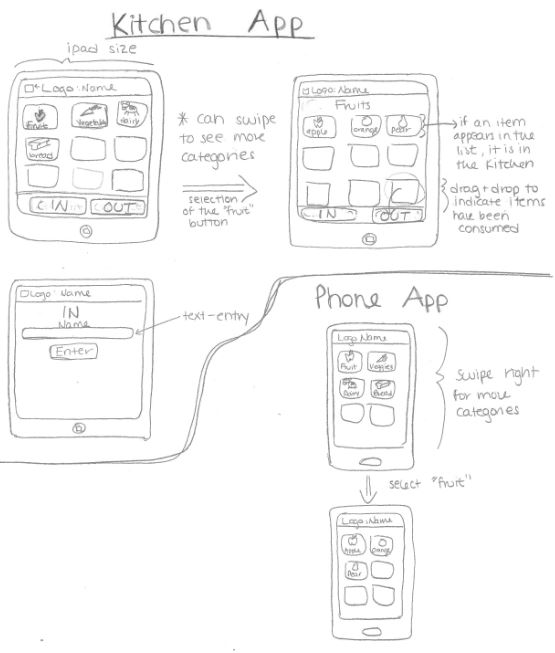 Kitchen App
ipad size
Logo: Name
Fruits
Vegetables
Dairy
bread
IN
OUT
* can swipe
to see more
categories
selection
of the "fruit"
button
Logo: Name
Fruits
apple
orange
Pear
IN
OUT
if an item
appears in the
list, it is in
the Kitchen
drag + drop to
indicate items
have been
consumed
Logo: Name
IN
Name
Enter
text-entry
Phone App
Logo: Name
Fruit
Veggies
Dairy
Bread
swipe right
for more
categories
select "fruit"
Logo: Name
Apple
Orange
Pear